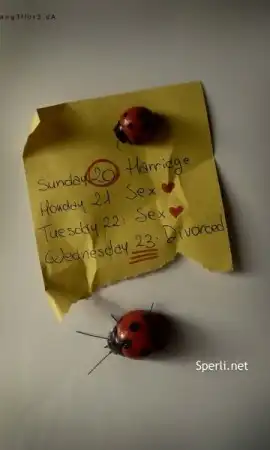 Sunday 20 Harriege
Monday 21 Sex ♥
Tuesday 22: Sex ♥
Wednesday 23: Divorced
Sperli.net